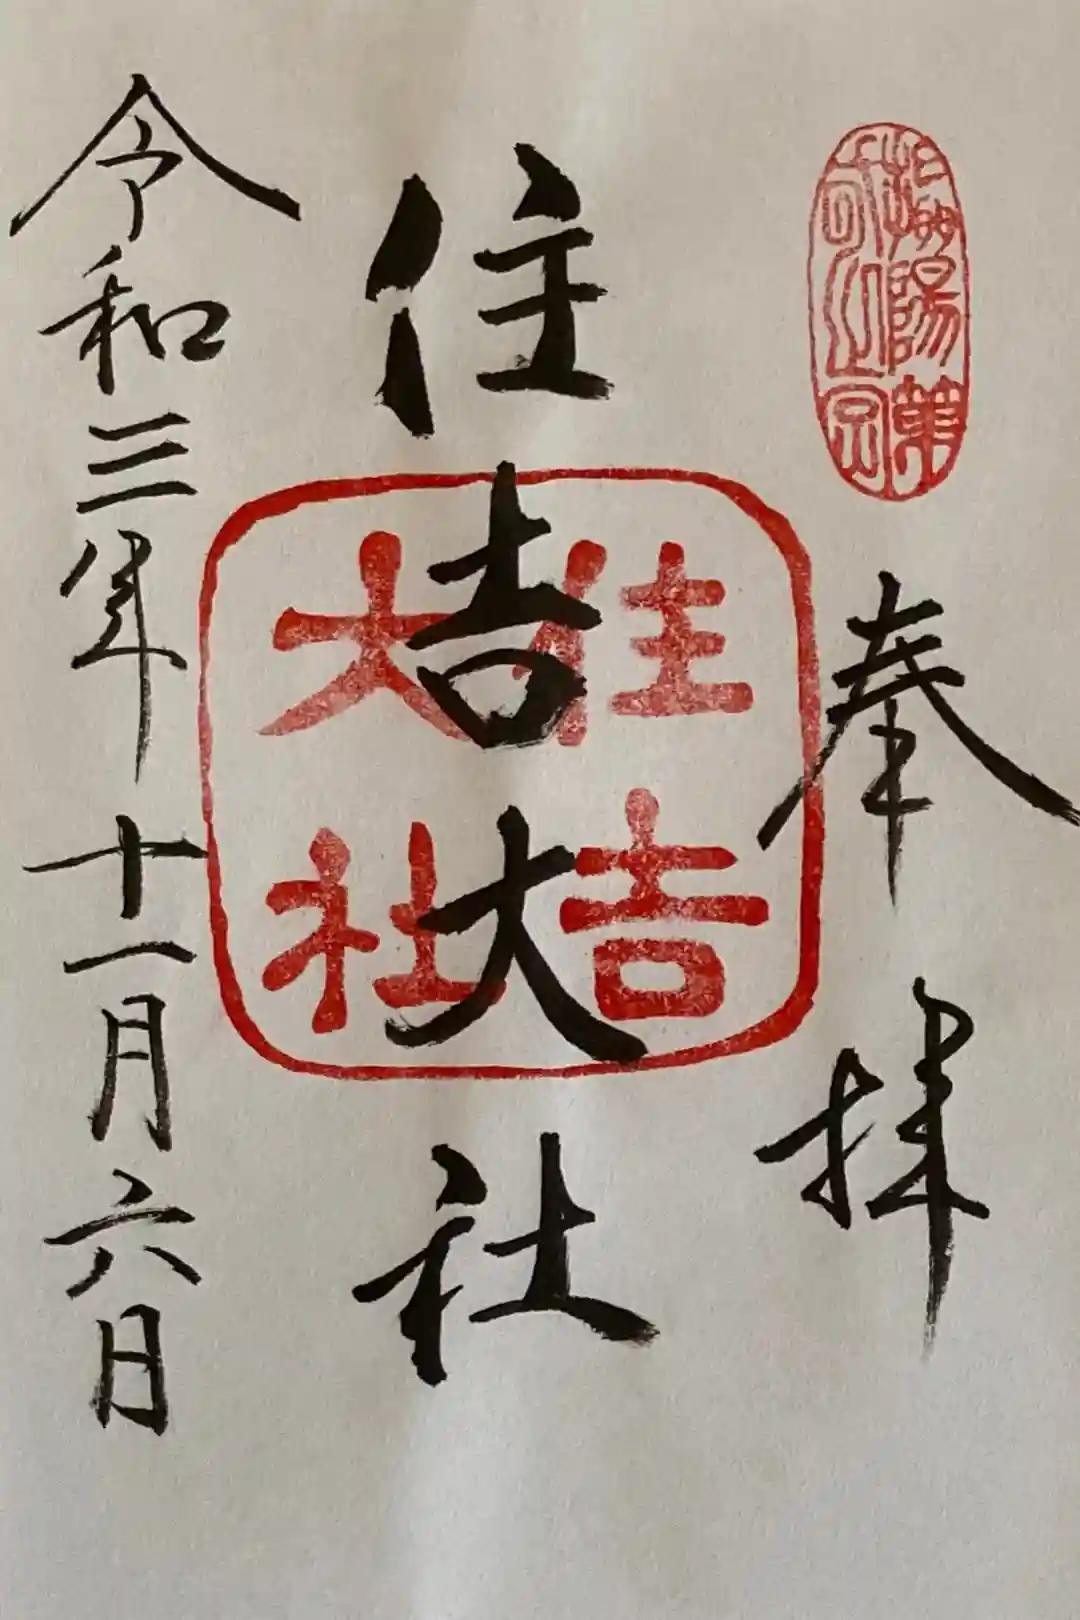 陽第
奉拝
住吉大社
住吉
大社
令和三年十一月六日